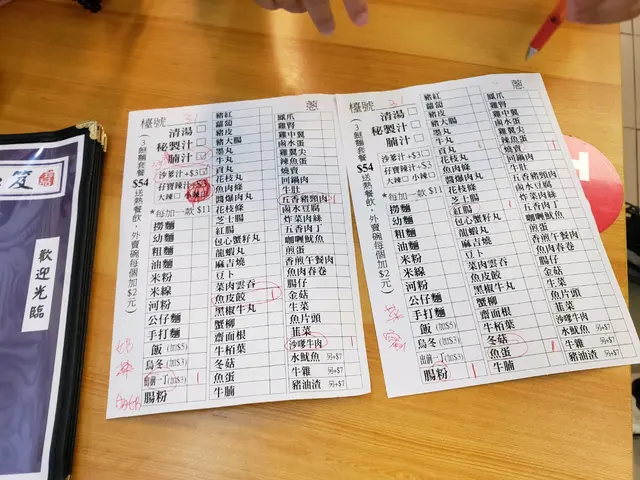 歡迎光臨
蔥
檯號 31
清湯
秘製汁
腩汁
沙爹汁+$3
孖寶辣汁+$3
大辣
(3餸麵套餐)
$54
送熱餐飲,外賣碗每個加$2元
*每加一款 $11
撈麵
幼麵
粗麵
油麵
米粉
米線
河粉
公仔麵
手打麵
飯(加$3)
烏冬(加$3)
出前一丁(加$3)
腸粉
豬紅
蘿蔔
豬皮
豬大腸
墨丸
牛丸
貢丸
花枝丸
魚肉條
醬爆肉丸
花枝條
芝士腸
紅腸
包心芝士丸
龍蝦丸
麻吉燒
豆卜
菜肉雲吞
魚皮餃
黑椒牛丸
蟹柳
齋面根
牛栢葉
冬菇
魚蛋
牛腩
鳳爪
雞腎
雞中翼
鹵水蛋
雞翼尖
辣魚蛋
燒賣
回鍋肉
牛肚
五香豬頸肉
鹵水豆腐
炸菜肉絲
五香肉丁
咖喱魷魚
煎蛋
香煎午餐肉
魚肉春卷
腸仔
金菇
生菜
魚片頭
韮菜
沙嗲牛肉
水魷魚 另+$7
牛雜 另+$7
豬油渣 另+$7
蔥
檯號 31
清湯
秘製汁
腩汁
沙爹汁+$3
孖寶辣汁+$3
大辣 小辣
(3餸麵套餐)
$54
送熱餐飲,外賣碗每個加$2元
*每加一款 $11
撈麵
幼麵
粗麵
油麵
米粉
米線
河粉
公仔麵
手打麵
飯(加$3)
烏冬(加$3)
出前一丁(加$3)
腸粉
豬紅
蘿蔔
豬皮
豬大腸
墨丸
牛丸
貢丸
花枝丸
魚肉條
醬爆肉丸
花枝條
芝士腸
紅腸
包心芝士丸
龍蝦丸
麻吉燒
豆卜
菜肉雲吞
魚皮餃
黑椒牛丸
蟹柳
齋面根
牛栢葉
冬菇
魚蛋
牛腩
鳳爪
雞腎
雞中翼
鹵水蛋
雞翼尖
辣魚蛋
燒賣
回鍋肉
牛肚
五香豬頸肉
鹵水豆腐
炸菜肉絲
五香肉丁
咖喱魷魚
煎蛋
香煎午餐肉
魚肉春卷
腸仔
金菇
生菜
魚片頭
韮菜
沙嗲牛肉
水魷魚 另+$7
牛雜 另+$7
豬油渣 另+$7